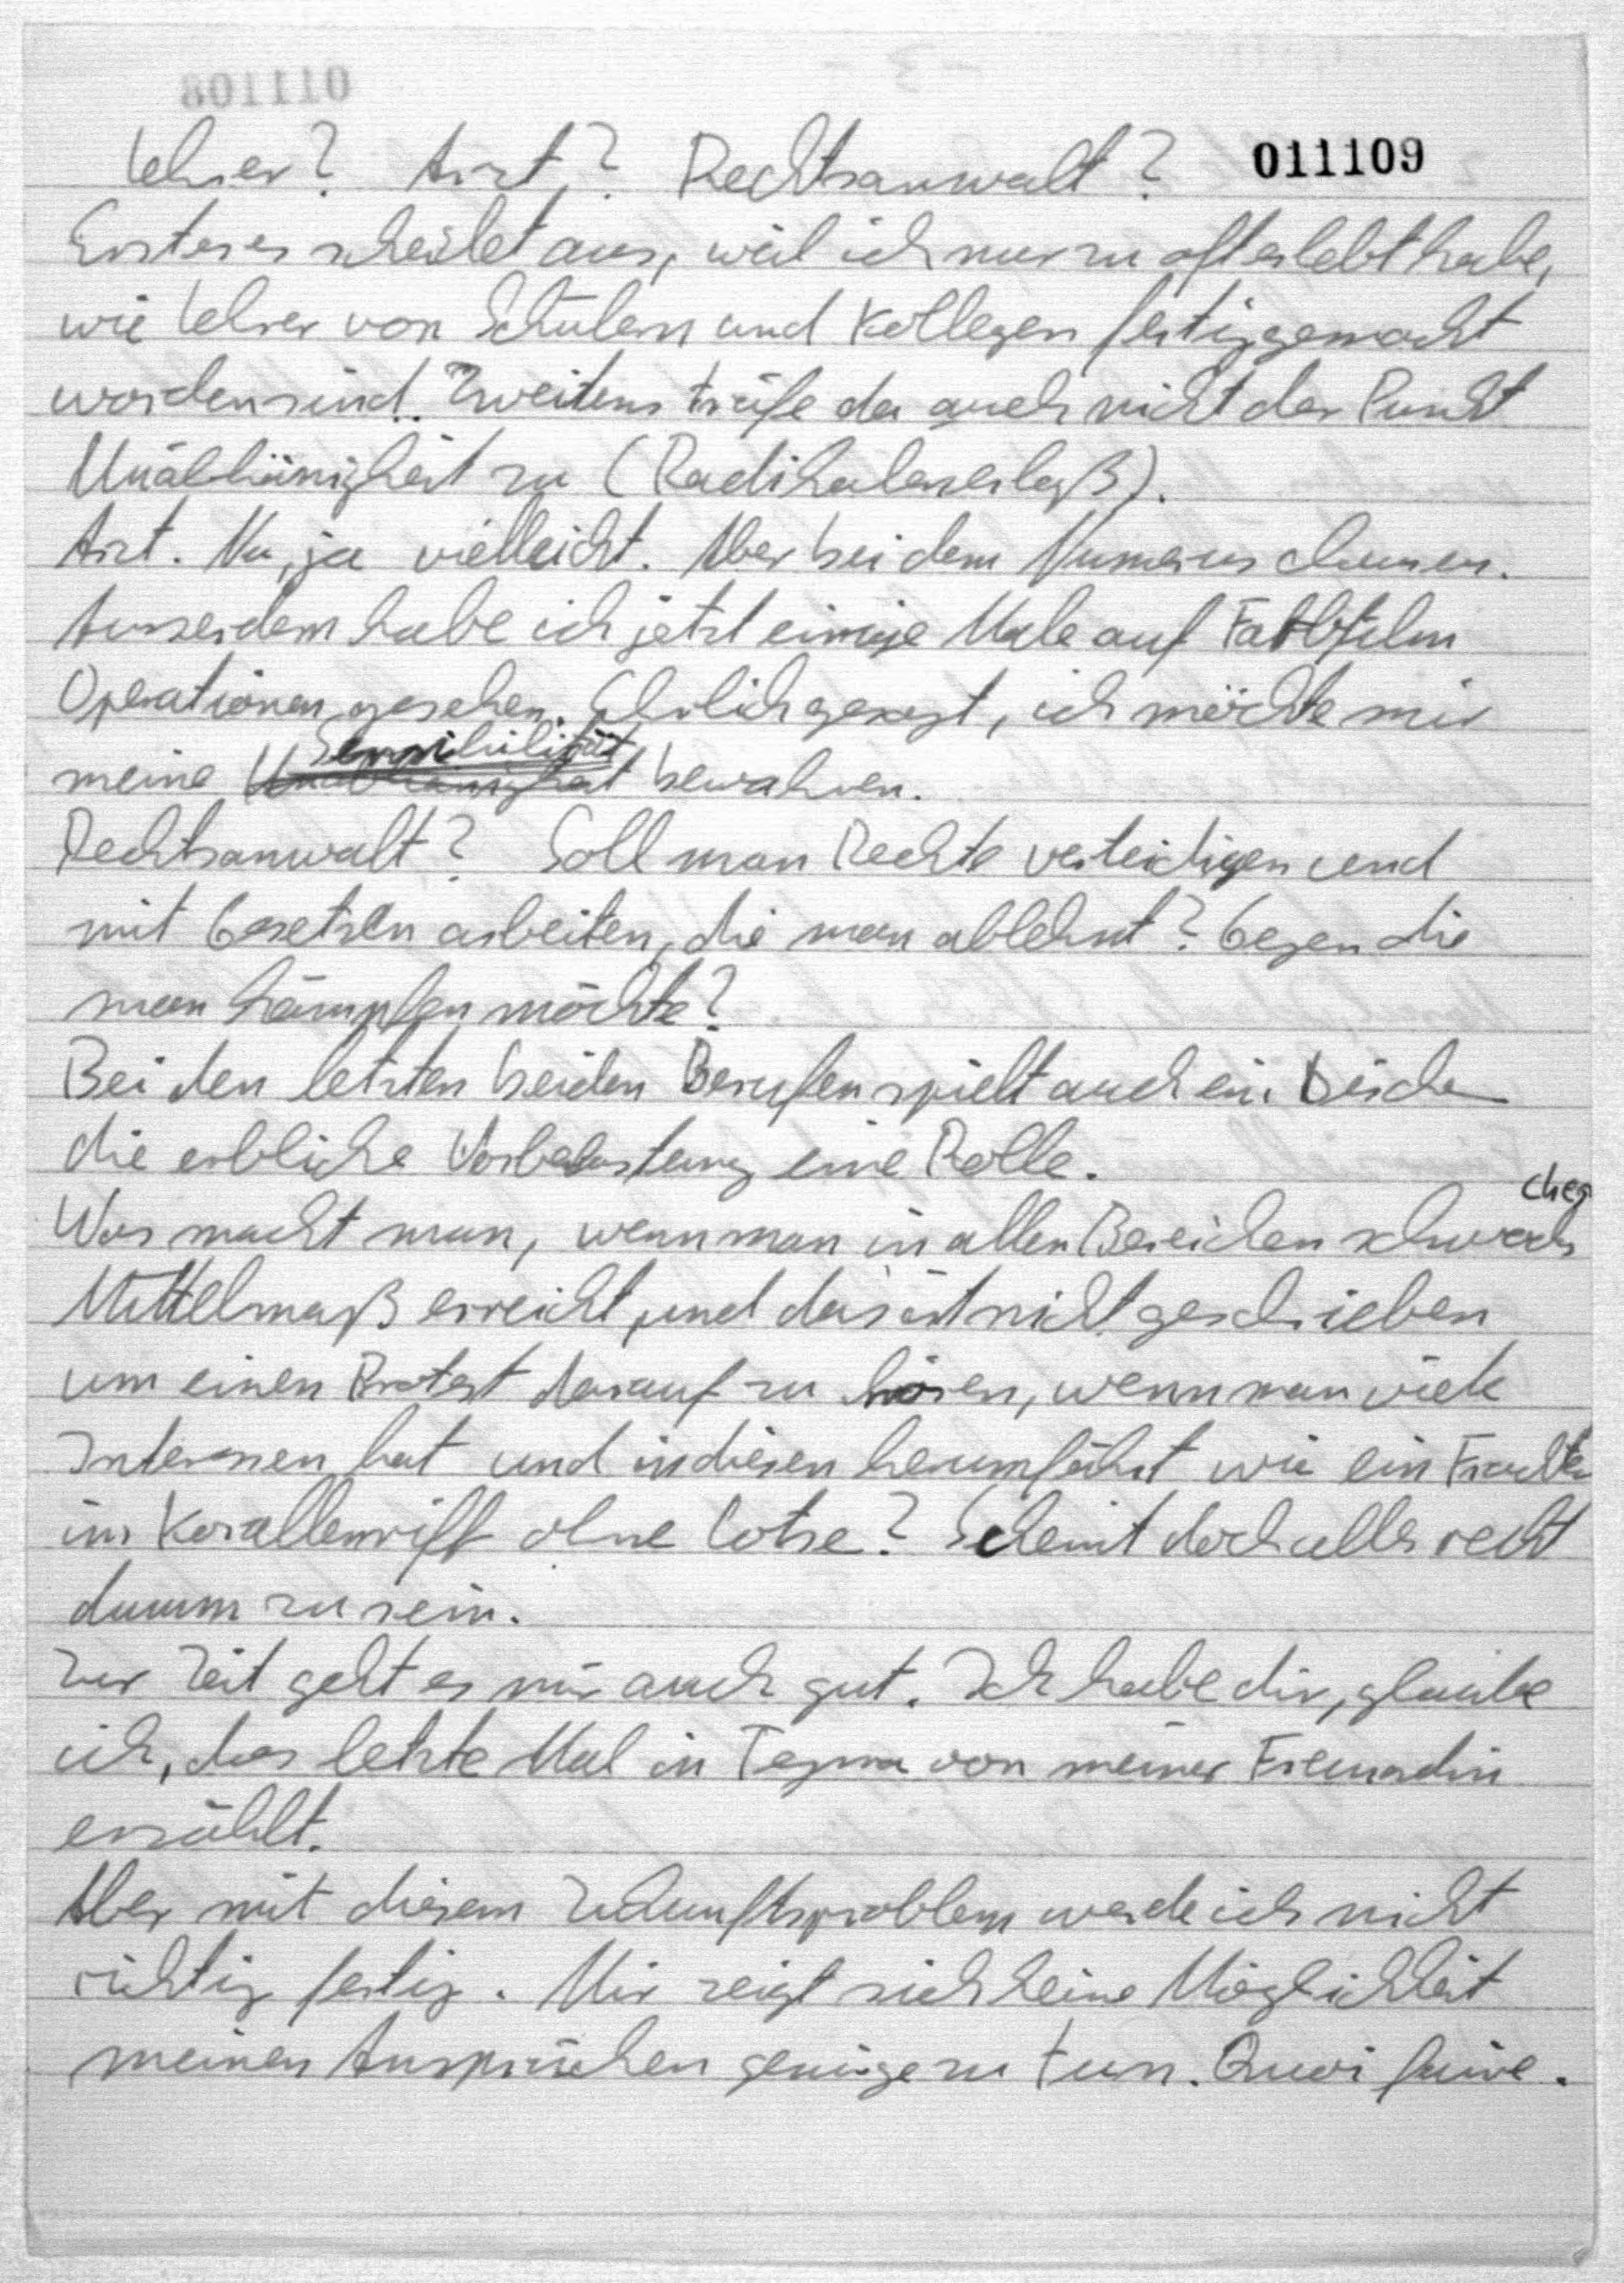 011109
Lehrer? Arzt? Rechtsanwalt?
Ersteres scheidet aus, weil ich nur zu oft erlebt habe,
wie Lehrer von Schülern und Kollegen fertiggemacht
worden sind. Zweitens träfe da auch nicht der Punkt
Unabhänigkeit zu (Radikalenerlaß).
Arzt. Na, ja vielleicht. Aber bei dem Numerus clausus.
Ausserdem habe ich jetzt einige Male auf Farbfilm
Operationen gesehen. Ehrlich gesagt, ich möchte mir
Sensibilität
meine Unabhänigkeit bewahren.
Rechtsanwalt? Soll man Rechte verteidigen und
mit Gesetzen arbeiten, die man ablehnt? Gegen die
man kämpfen möchte?
Bei den letzten beiden Berufen spielt auch ein bischen
die erbliche Vorbelastung eine Rolle.
ches
Was macht man, wenn man in allen Bereichen schwach
Mittelmaß erreicht, und das ist nicht geschrieben
um einen Protest darauf zu hören, wenn man viele
Interessen hat und in diesen herumfährt wie ein Frachter
im Korallenriff ohne Lotse? Scheint doch alles recht
dumm zu sein.
Zur Zeit geht es mir auch gut. Ich habe dir, glaube
ich, das letzte Mal in Tegna von meiner Freundin
erzählt.
Aber mit diesem Zukunftsproblem werde ich nicht
richtig fertig. Mir zeigt sich keine Möglichkeit
meinen Ansprüchen genüge zu tun. Quoi faire.